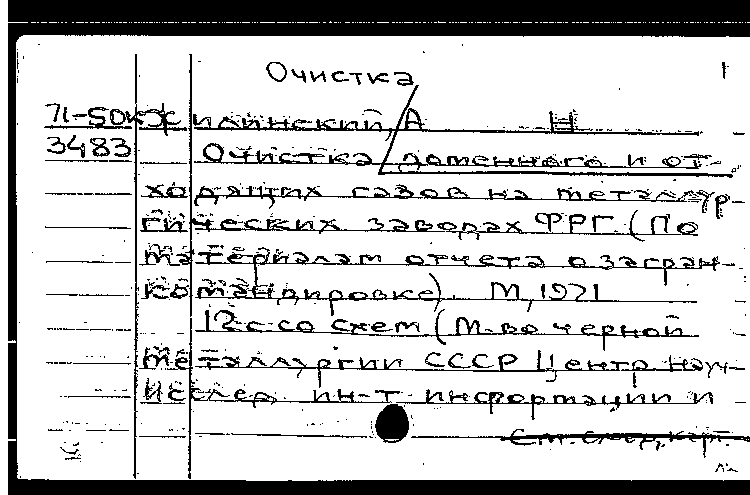 Очистка
71-50к Жилинский, А Н
3483 Очистка доменного и от-
ходящих газов на металлур
гических заводах ФРГ (По
материалам отчета о загран-
командировке). М, 1971
12 с со схем (М-во черной
металлургии СССР Центр науч-
исслед ин-т информации и
См. след. карт.